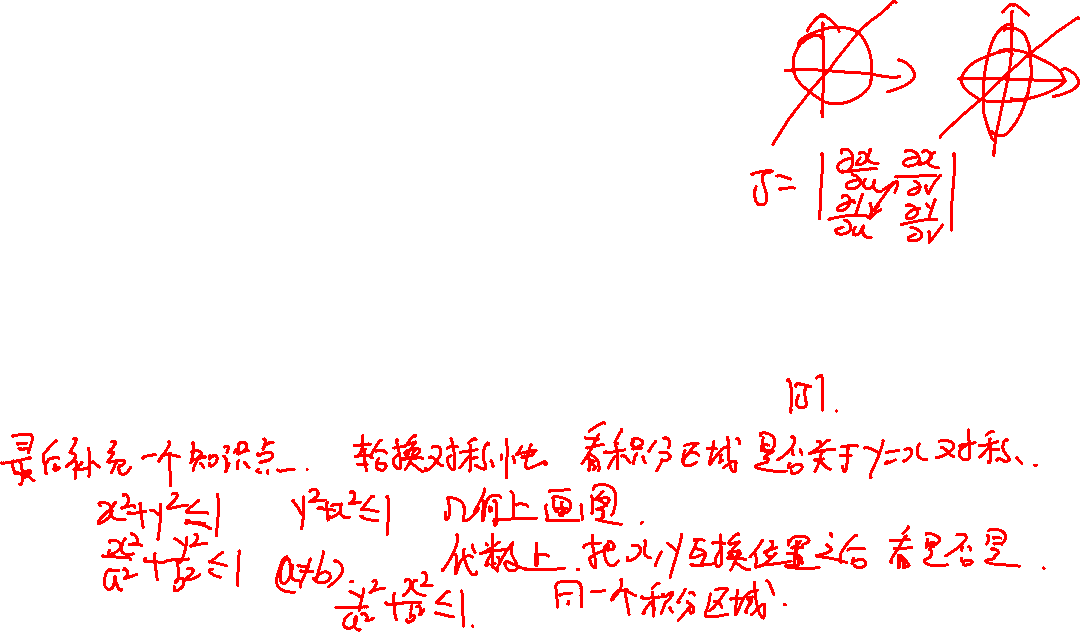 J = | ∂x/∂u ∂x/∂v |
| ∂y/∂u ∂y/∂v |
|J|.
最后补充一个知识点. 轮换对称性 看积分区域是否关于y=x对称.
x²+y²≤1 y²+x²≤1 几何上画图.
x²/a²+y²/b²≤1 (a≠b). 代数上.把x,y互换位置之后 看是否是.
y²/a²+x²/b²≤1. 同一个积分区域.